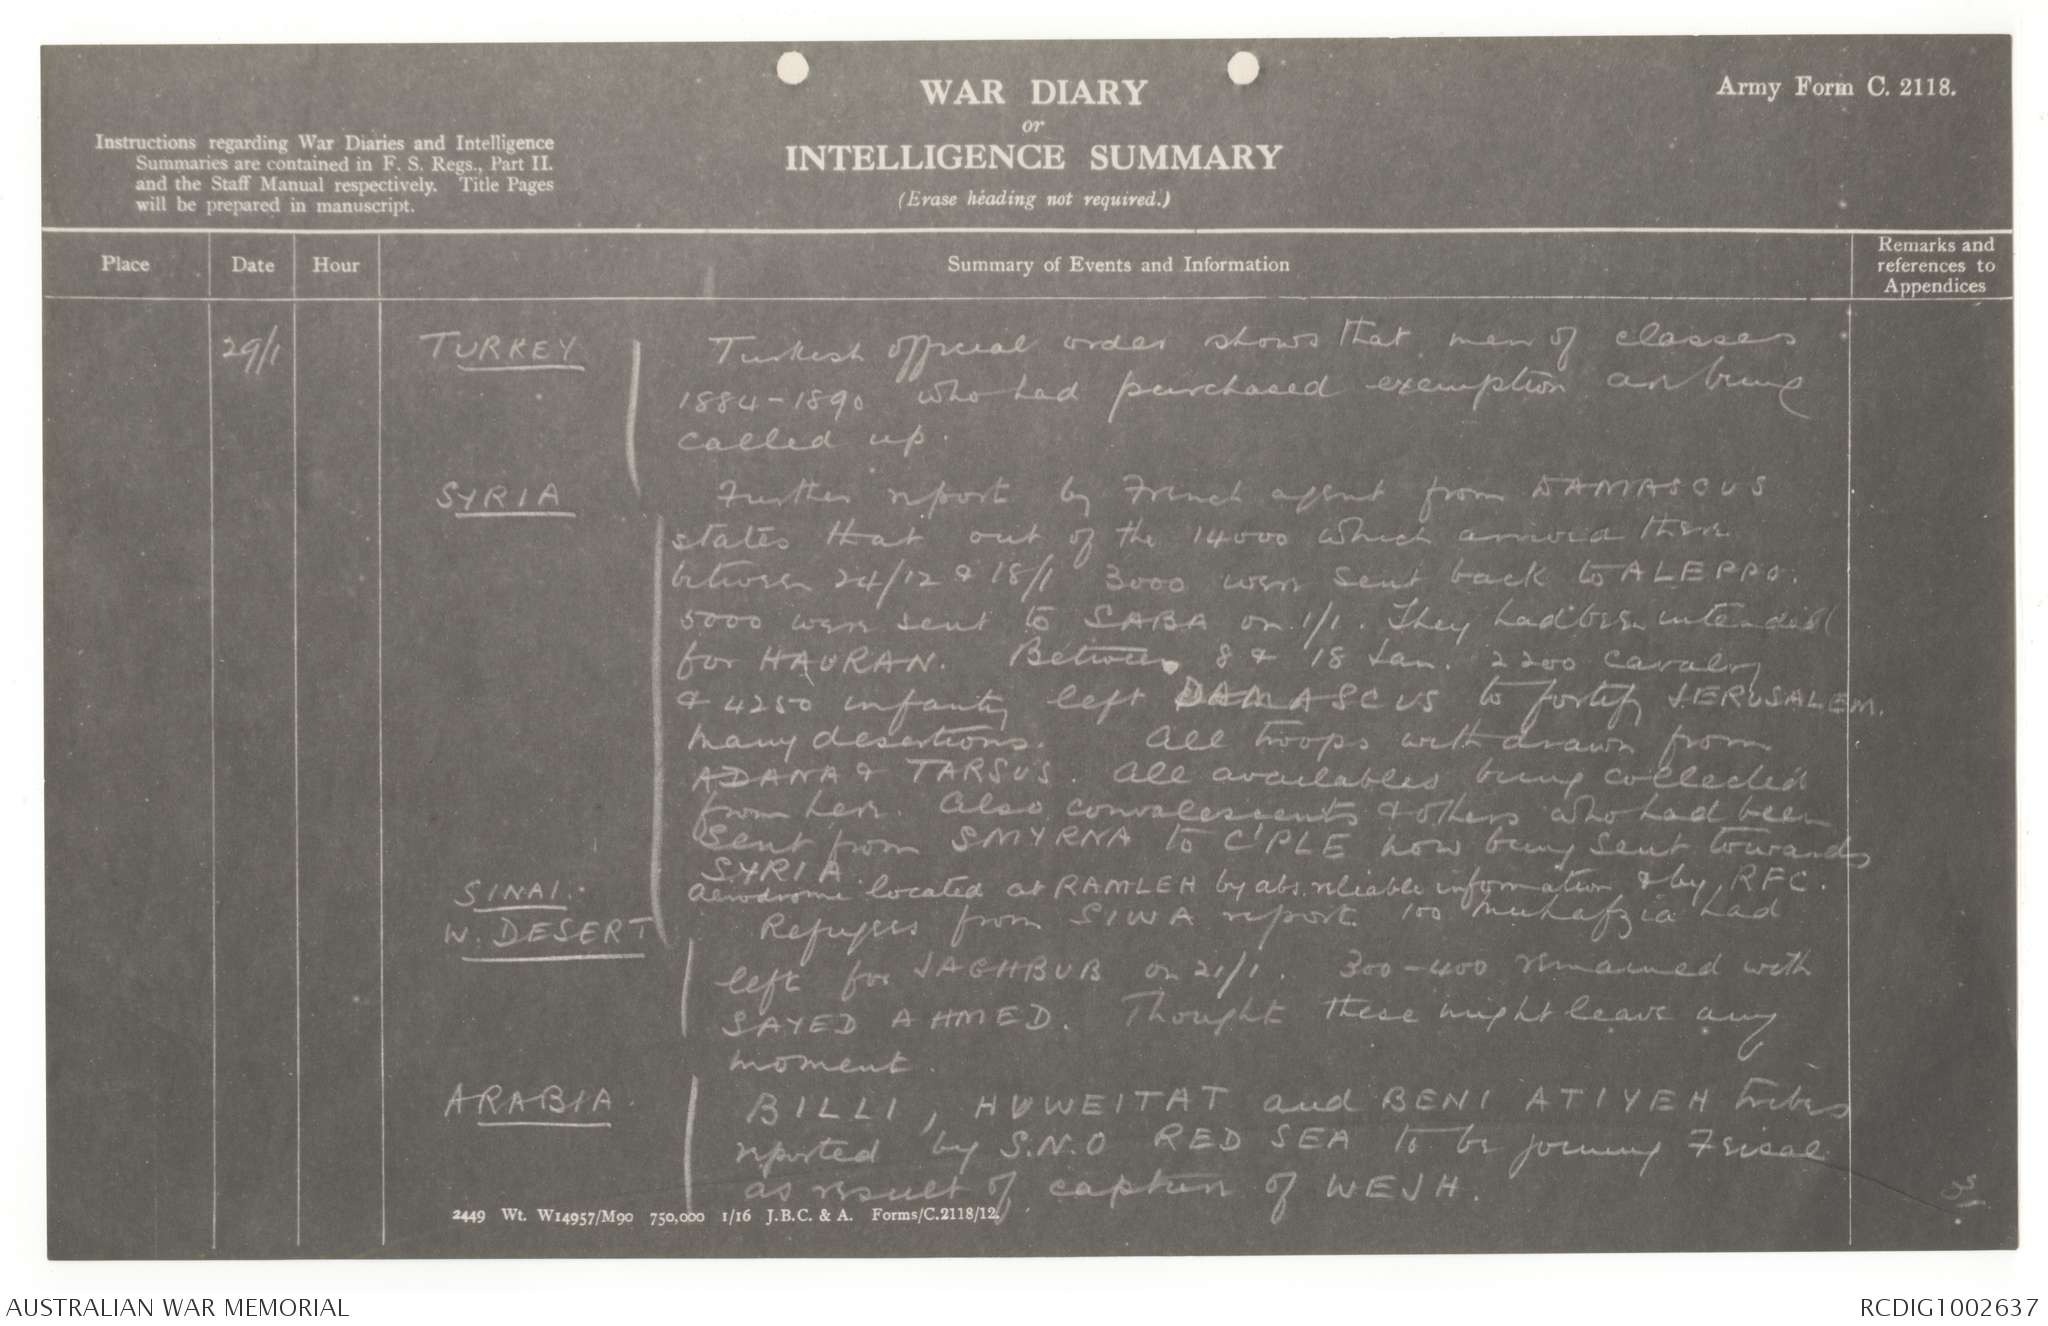 WAR DIARY
or
INTELLIGENCE SUMMARY
(Erase heading not required.)
Army Form C. 2118.
Instructions regarding War Diaries and Intelligence
Summaries are contained in F. S. Regs., Part II.
and the Staff Manual respectively. Title Pages
will be prepared in manuscript.
Place
Date
Hour
Summary of Events and Information
Remarks and
references to
Appendices
29/1
TURKEY
Turkish official order shows that men of classes
1884-1890 who had purchased exemption are being
called up.
SYRIA
Further report by French agent from DAMASCUS
states that out of the 14000 which arrived there
between 24/12 & 18/1 3000 were sent back to ALEPPO.
5000 were sent to SABA on 1/1. They had been intended
for HAURAN. Between 8 & 18 Jan. 2200 cavalry
& 4250 infantry left DAMASCUS to fortify JERUSALEM.
Many desertions. All troops withdrawn from
ADANA & TARSUS. All availables being collected
from here. Also convalescents & others who had been
sent from SMYRNA to C'PLE now being sent towards
SYRIA.
SINAI.
Aerodrome located at RAMLEH by abs. reliable information & by RFC.
W. DESERT
Refugees from SIWA report 100 Muhafzia had
left for JAGHBUB on 21/1. 300-400 remained with
SAYED AHMED. Thought these might leave any
moment.
ARABIA.
BILLI, HUWEITAT and BENI ATIYEH tribes
reported by S.N.O RED SEA to be joining Feisal
as result of capture of WEJH.
2449 Wt. W14957/M90 750,000 1/16 J.B.C. & A. Forms/C.2118/12.
AUSTRALIAN WAR MEMORIAL
RCDIG1002637